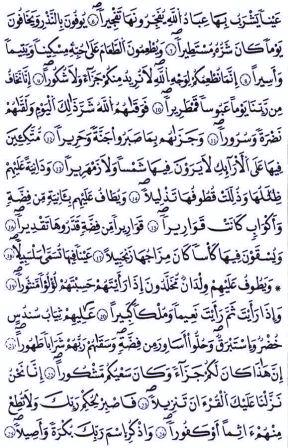 عَيْنًا يَشْرَبُ بِهَا عِبَادُ اللَّهِ يُفَجِّرُونَهَا تَفْجِيرًا ٦ يُوفُونَ بِالنَّذْرِ وَيَخَافُونَ
يَوْمًا كَانَ شَرُّهُ مُسْتَطِيرًا ٧ وَيُطْعِمُونَ الطَّعَامَ عَلَىٰ حُبِّهِ مِسْكِينًا وَيَتِيمًا
وَأَسِيرًا ٨ إِنَّمَا نُطْعِمُكُمْ لِوَجْهِ اللَّهِ لَا نُرِيدُ مِنكُمْ جَزَآءً وَلَا شُكُورًا ٩ إِنَّا نَخَافُ
مِن رَّبِّنَا يَوْمًا عَبُوسًا قَمْطَرِيرًا ١٠ فَوَقَىٰهُمُ اللَّهُ شَرَّ ذَٰلِكَ الْيَوْمِ وَلَقَّىٰهُمْ
نَضْرَةً وَسُرُورًا ١١ وَجَزَىٰهُم بِمَا صَبَرُوا جَنَّةً وَحَرِيرًا ١٢ مُّتَّكِـِٔينَ
فِيهَا عَلَى الْأَرَآئِكِ لَا يَرَوْنَ فِيهَا شَمْسًا وَلَا زَمْهَرِيرًا ١٣ وَدَانِيَةً عَلَيْهِمْ
ظِلَٰلُهَا وَذُلِّلَتْ قُطُوفُهَا تَذْلِيلًا ١٤ وَيُطَافُ عَلَيْهِم بِـَٔانِيَةٍ مِّن فِضَّةٍ
وَأَكْوَابٍ كَانَتْ قَوَارِيرَا ١٥ قَوَارِيرَا مِن فِضَّةٍ قَدَّرُوهَا تَقْدِيرًا ١٦
وَيُسْقَوْنَ فِيهَا كَأْسًا كَانَ مِزَاجُهَا زَنجَبِيلًا ١٧ عَيْنًا فِيهَا تُسَمَّىٰ سَلْسَبِيلًا ١٨
وَيَطُوفُ عَلَيْهِمْ وِلْدَٰنٌ مُّخَلَّدُونَ إِذَا رَأَيْتَهُمْ حَسِبْتَهُمْ لُؤْلُؤًا مَّنثُورًا ١٩
وَإِذَا رَأَيْتَ ثَمَّ رَأَيْتَ نَعِيمًا وَمُلْكًا كَبِيرًا ٢٠ عَٰلِيَهُمْ ثِيَابُ سُندُسٍ
خُضْرٌ وَإِسْتَبْرَقٌ وَحُلُّوا أَسَاوِرَ مِن فِضَّةٍ وَسَقَىٰهُمْ رَبُّهُمْ شَرَابًا طَهُورًا ٢١
إِنَّ هَٰذَا كَانَ لَكُمْ جَزَآءً وَكَانَ سَعْيُكُم مَّشْكُورًا ٢٢ إِنَّا نَحْنُ
نَزَّلْنَا عَلَيْكَ الْقُرْءَانَ تَنزِيلًا ٢٣ فَاصْبِرْ لِحُكْمِ رَبِّكَ وَلَا تُطِعْ
مِنْهُمْ ءَاثِمًا أَوْ كَفُورًا ٢٤ وَاذْكُرِ اسْمَ رَبِّكَ بُكْرَةً وَأَصِيلًا ٢٥